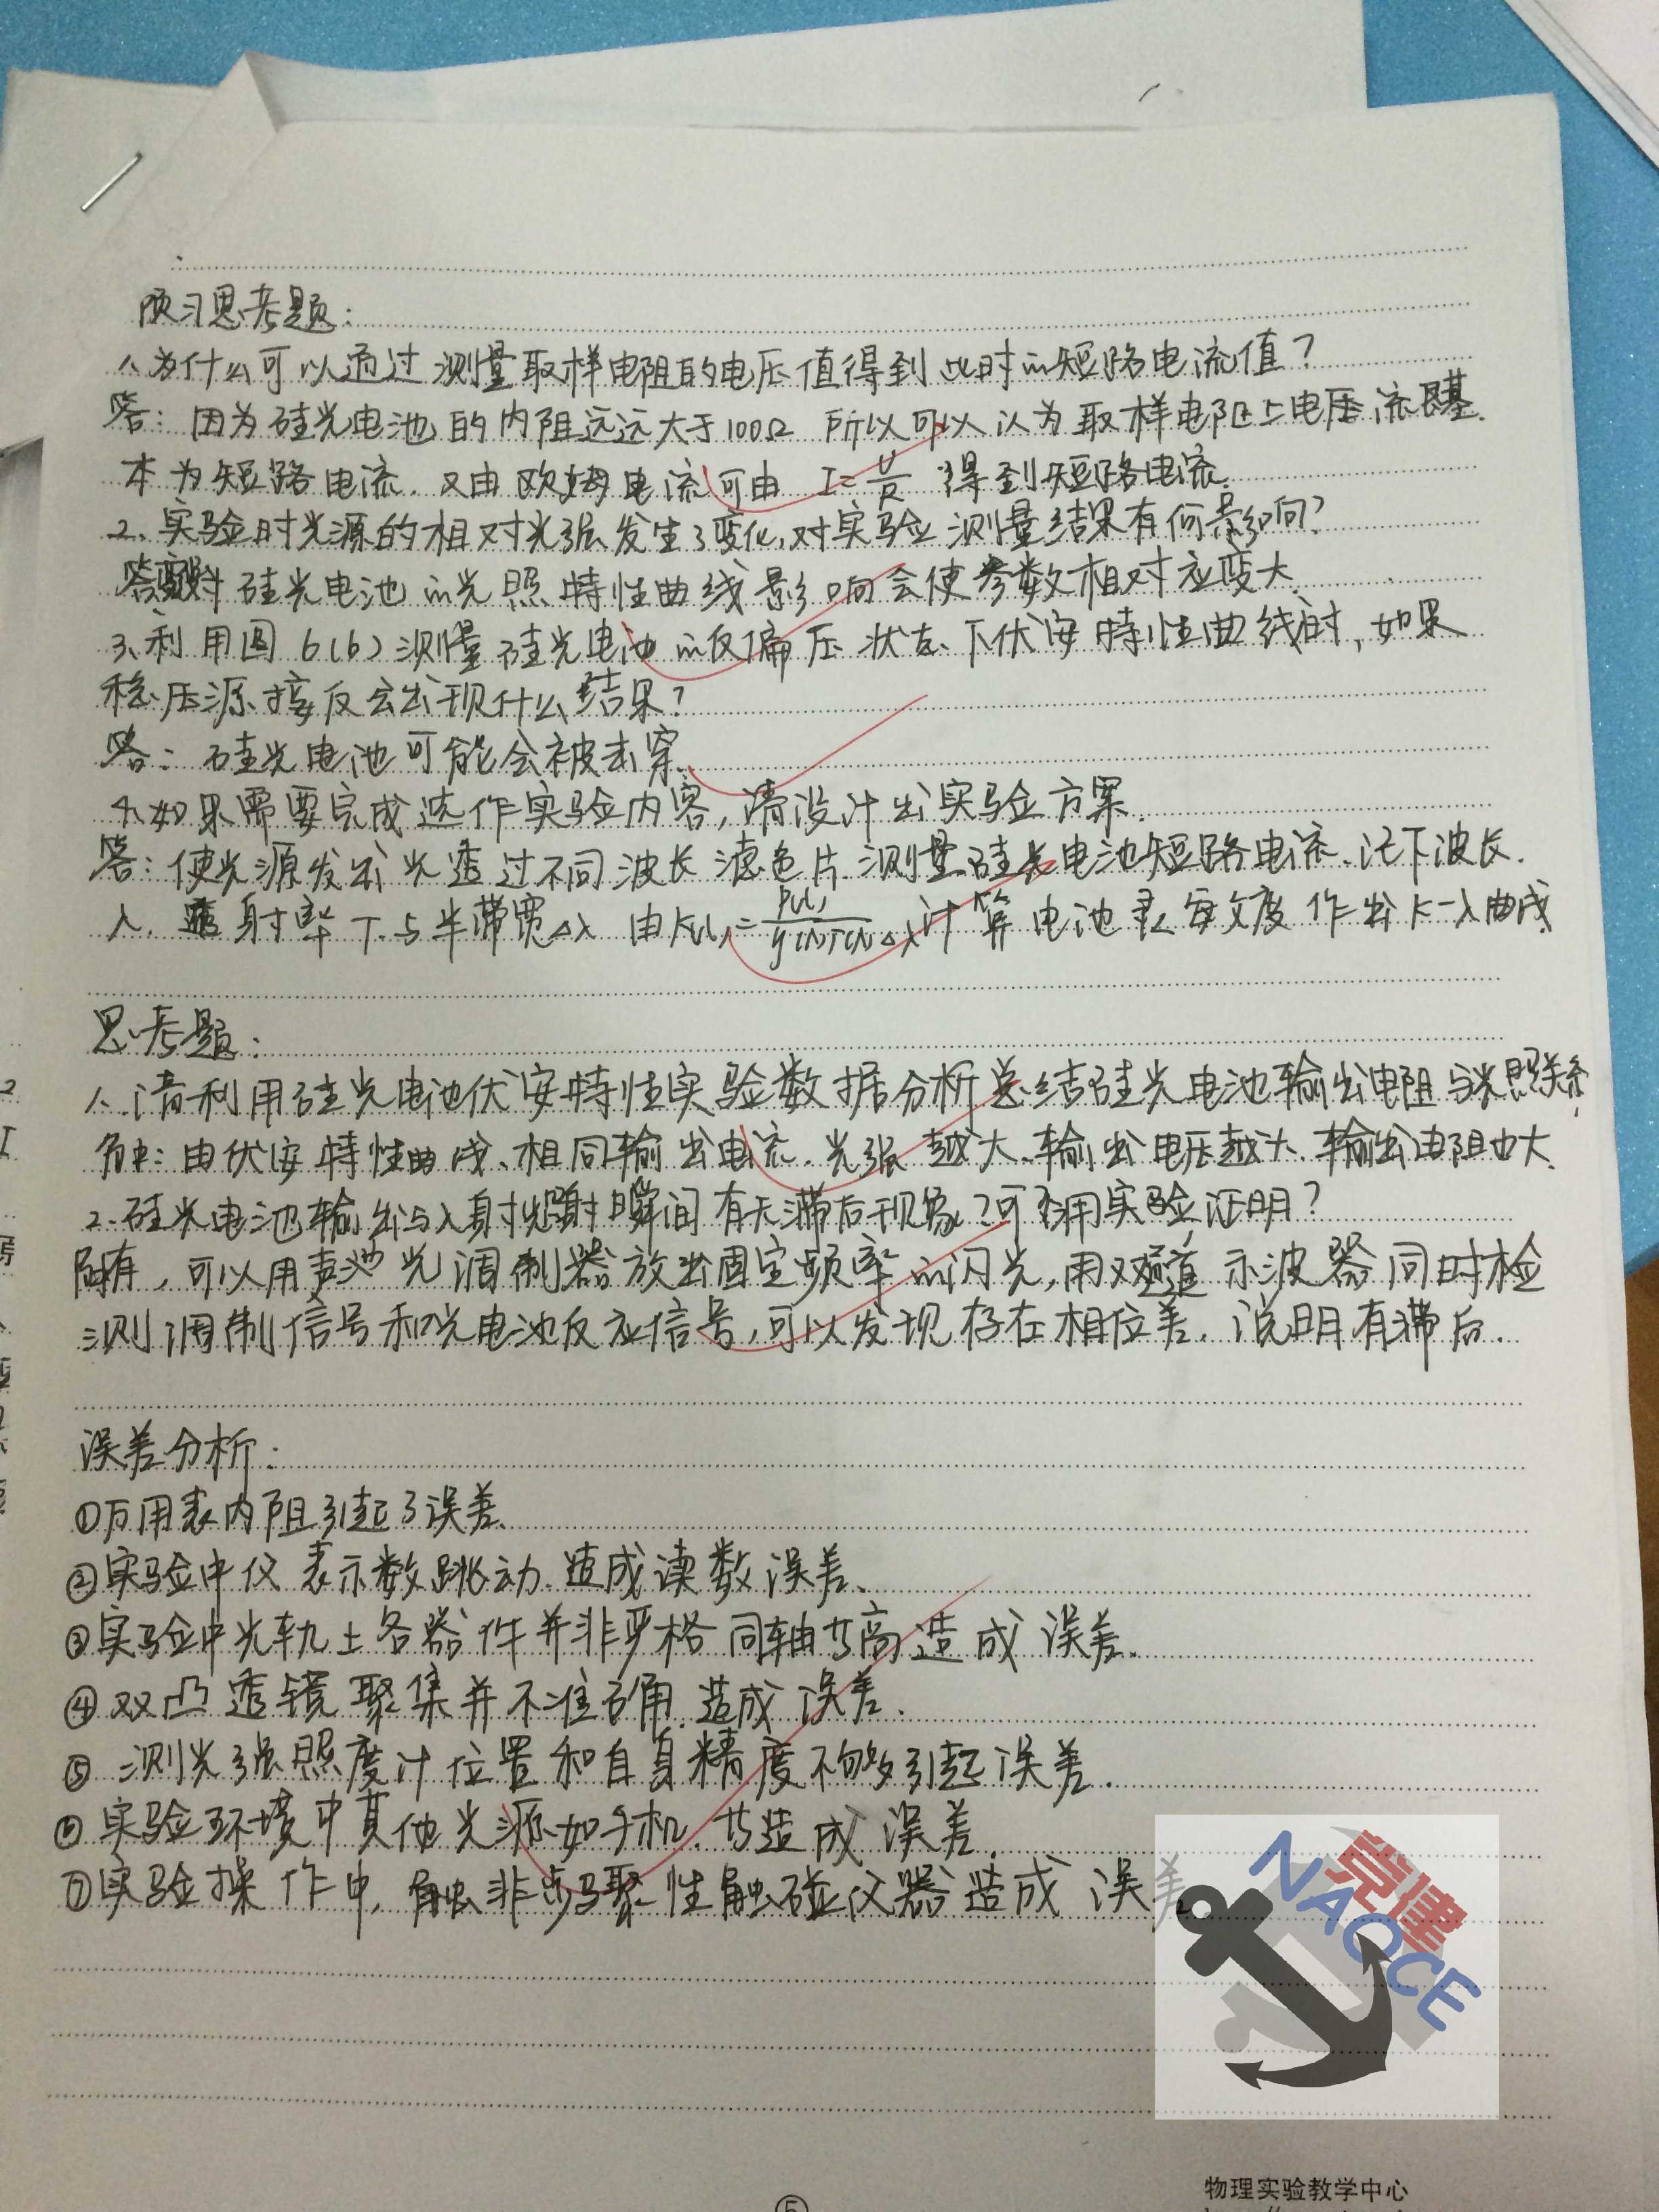 预习思考题:
1、为什么可以通过测量取样电阻的电压值得到此时的短路电流值?
答:因为硅光电池的内阻远远大于100Ω 所以可以认为取样电阻上电压流基
本为短路电流.又由欧姆电流可由 I=U/R 得到短路电流.
2、实验时光源的相对光强发生了变化,对实验测量结果有何影响?
硅光电池的光照特性曲线影响会使参数相对应变大.
3、利用图6(b)测量硅光电池的反偏压状态下伏安特性曲线时,如果
稳压源接反会出现什么结果?
答:硅光电池可能会被击穿.
4、如果需要完成选作实验内容,请设计出实验方案.
答:使光源发出光透过不同波长滤色片.测量硅光电池短路电流.记下波长.
λ.透射率T.与半带宽Δλ 由 计算电池灵敏度作出K-λ曲线
思考题:
1、请利用硅光电池伏安特性实验数据分析总结硅光电池输出电阻与光照关系
由伏安特性曲线、相同输出电流.光强越大.输出电压越大.输出电阻也大.
2.硅光电池输出与入射光照射瞬间有无滞后现象?可否用实验证明?
有,可以用声光调制器放出固定频率的闪光,用双通道示波器同时检
测调制信号和光电池反应信号,可以发现存在相位差.说明有滞后.
误差分析:
①万用表内阻引起了误差.
②实验中仪表示数跳动.造成读数误差.
③实验中光轨上各器件并非严格同轴等高造成误差.
④双凸透镜聚集并不准确.造成误差.
⑤测光强照度计位置和自身精度不够引起误差.
⑥实验环境中其他光源如手机.等造成误差.
⑦实验操作中,触碰仪器造成误差
党建
NAOCE
物理实验教学中心
⑤